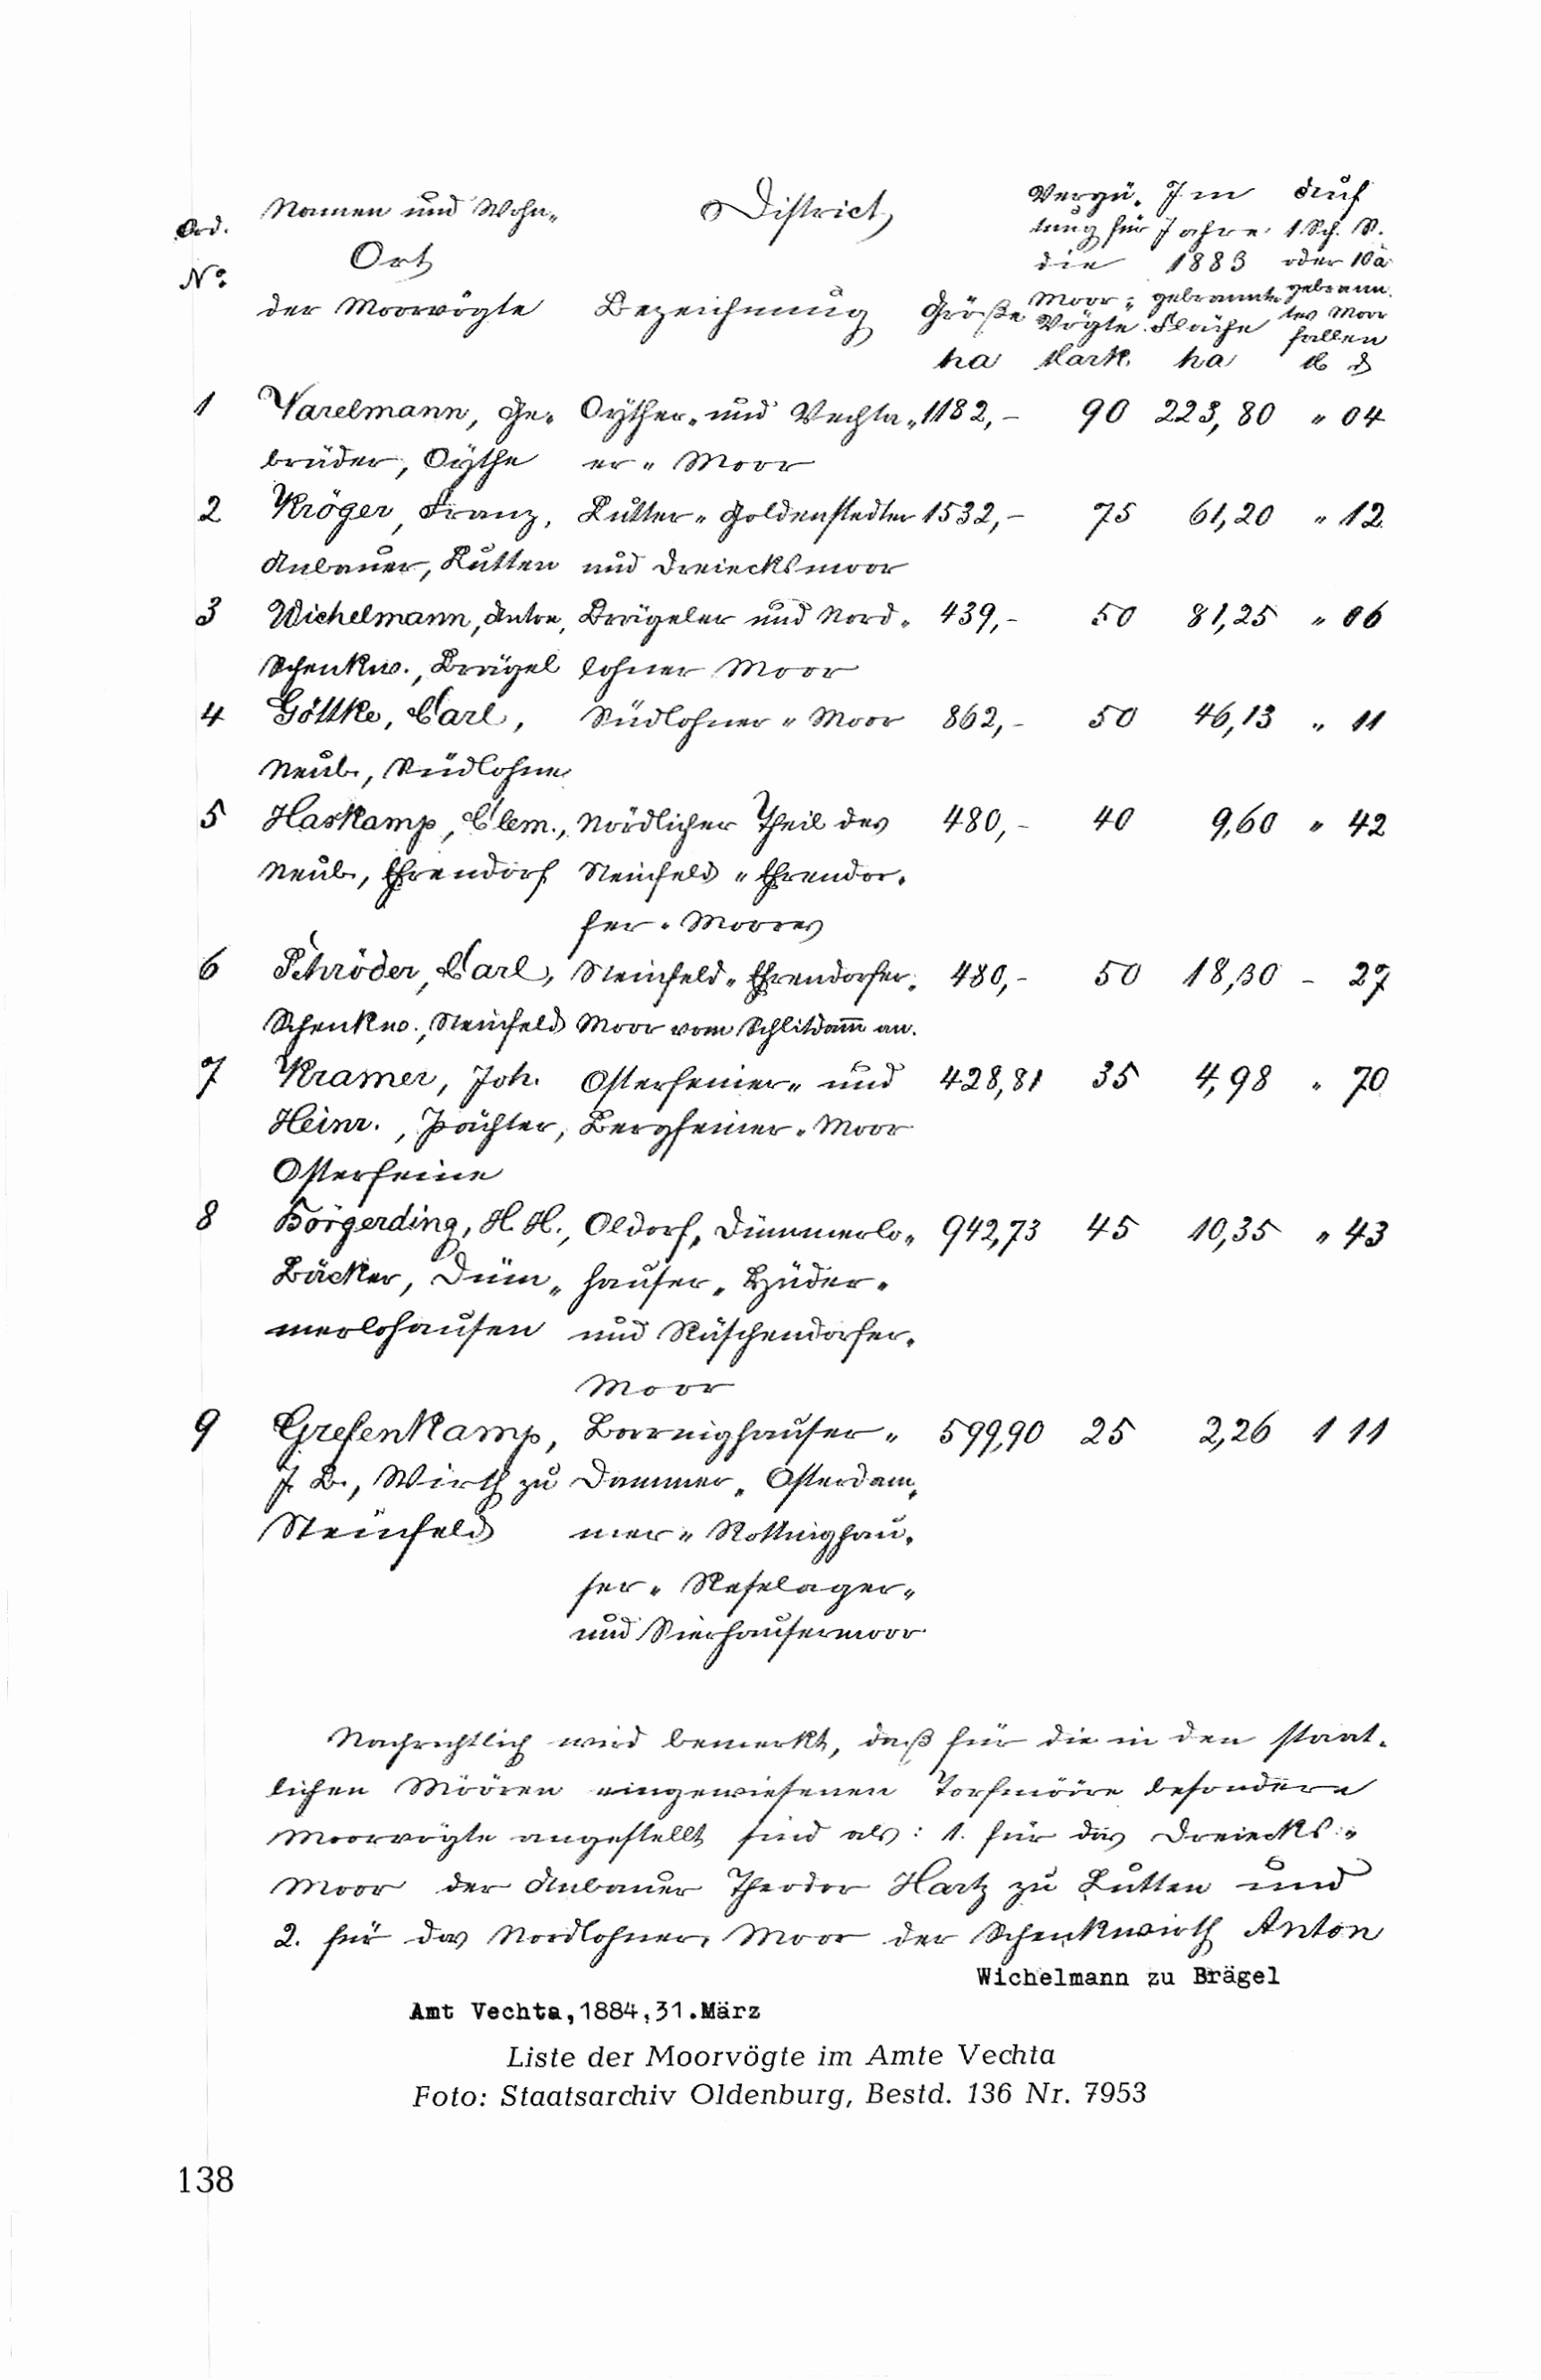 Ord. Namen und Wohn- District Vergü- Im Auf
No. Ort tung für Jahre 1 Sch. S.
die 1883 oder 10 a
der Moorvögte Bezeichnung Größe Moor- gebrannte gebrann-
Vögte Fläche tes Moor
fallen
ha Mark. ha M ₰
1 Varelmann, Ge- Oyther- und Vechta- 1182,- 90 223,80 " 04
brüder, Oythe er- Moor
2 Kröger, Franz, Lutter- Goldenstedter 1532,- 75 61,20 " 12
Anbauer, Lutten und Dreiecksmoor
3 Wichelmann, Anton, Brägeler und Nord- 439,- 50 81,25 " 06
Schenkw., Brägel lohner Moor
4 Göttke, Carl, Südlohner- Moor 862,- 50 46,13 " 11
Neub., Südlohne
5 Haskamp, Clem., Nördlicher Theil des 480,- 40 9,60 " 42
Neub., Ehrendorf Steinfeld- Ehrendor-
fer- Moores
6 Schröder, Carl, Steinfeld- Ehrendorfer- 480,- 50 18,30 - 27
Schenkw., Steinfeld Moor vom Schlitdam̅ an.
7 Kramer, Joh. Osterfeiner- und 428,81 35 4,98 " 70
Heinr., Pächter, Bergfeiner- Moor
Osterfeine
8 Börgerding, H. H., Oldorf, Dümmerlo- 942,73 45 10,35 " 43
Bäcker, Düm- hauser- Hüder-
merlohausen und Rüschendorfer-
Moor
9 Grefenkamp, Borringhauser- 599,90 25 2,26 1 11
J. B., Wirth zu Dammer- Osterdam-
Steinfeld mer- Rottinghau-
ser- Reselager-
und Sierhausermoor
Nachrichtlich wird bemerkt, daß für die in den staat-
lichen Möören eingewiesenen Torfmööre besondere
Moorvögte angestellt sind als: 1. für das Dreiecks-
Moor der Anbauer Theodor Hartz zu Lutten und
2. für das Nordlohner Moor der Schenkwirth Anton
Wichelmann zu Brägel
Amt Vechta,1884,31.März
Liste der Moorvögte im Amte Vechta
Foto: Staatsarchiv Oldenburg, Bestd. 136 Nr. 7953
138